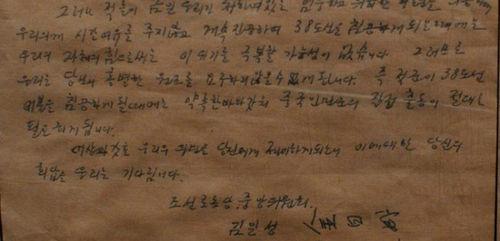 그러나 적들이 금일 우리가 처하여있는
우리에게 시간여유를 주지않고 계속진공하여 38도선을 침공하게되는때에는
우리의 자체의 힘으로써는 이 위기를 극복할 가능성이 없습니다. 그러므로
우리는 당신의 특별한 원조를 요구하지않을수 없게된니다. 즉 적군이 38도선
이북을 침공하게될때에는 약속한바와같이 중국인민군의 직접 출동이 절대로
필요하게됩니다.
이상과것은 우리의 의견을 당신에게 제의하게되는데 이에대한 당신의
회답을 우리는 기다립니다.
조선로동당 중앙위원회.
김일성